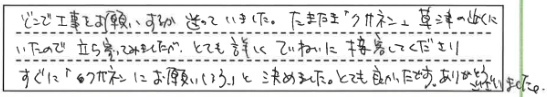 どこで工事をお願いするか迷っていました。たまたま「クサネン」草津の近くに
いたので立ち寄ってみましたが、とても詳しくていねいに接客してくださり
すぐに「クサネンにお願いしよう」と決めました。とても良かったです。ありがとうございました。